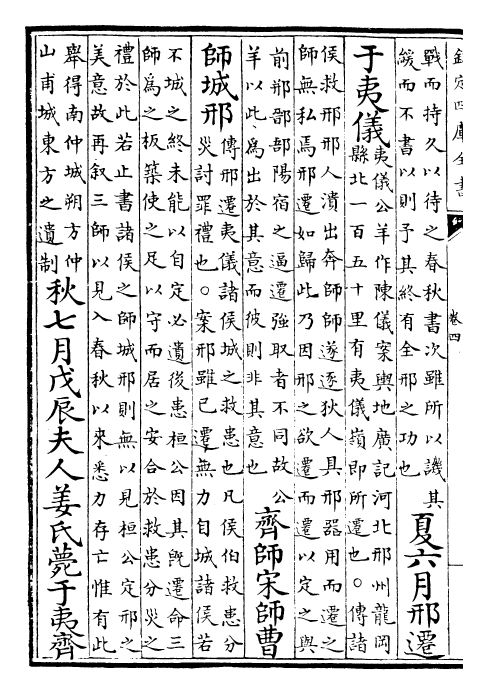 欽定四庫全書
卷四
戰而持久以待之春秋書次雖所以譏其
緩而不書以則予其終有全邢之功也
夏六月邢遷
于夷儀
夷儀公羊作陳儀案輿地廣記河北邢州龍岡
縣北一百五十里有夷儀嶺即所遷也○傳諸
侯救邢邢人潰出奔師師遂逐狄人具邢器用而遷之
師無私焉邢遷如歸此乃因邢之欲遷而遷以定之與
前邢鄑郚陽宿之逼遷強取者不同故公
羊以此為出於其意而彼則非其意也
齊師宋師曹
師城邢
傳邢遷夷儀諸侯城之救患也凡侯伯救患分
災討罪禮也○案邢雖已遷無力自城諸侯若
不城之終未能以自定必遺後患桓公因其既遷命三
師為之板築使之足以守而居之安合於救患分災之
禮於此若止書諸侯之師城邢則無以見桓公定邢之
美意故再叙三師以見入春秋以來悉力存亡惟有此
舉得南仲城朔方仲
山甫城東方之遺制
秋七月戊辰夫人姜氏薨于夷齊